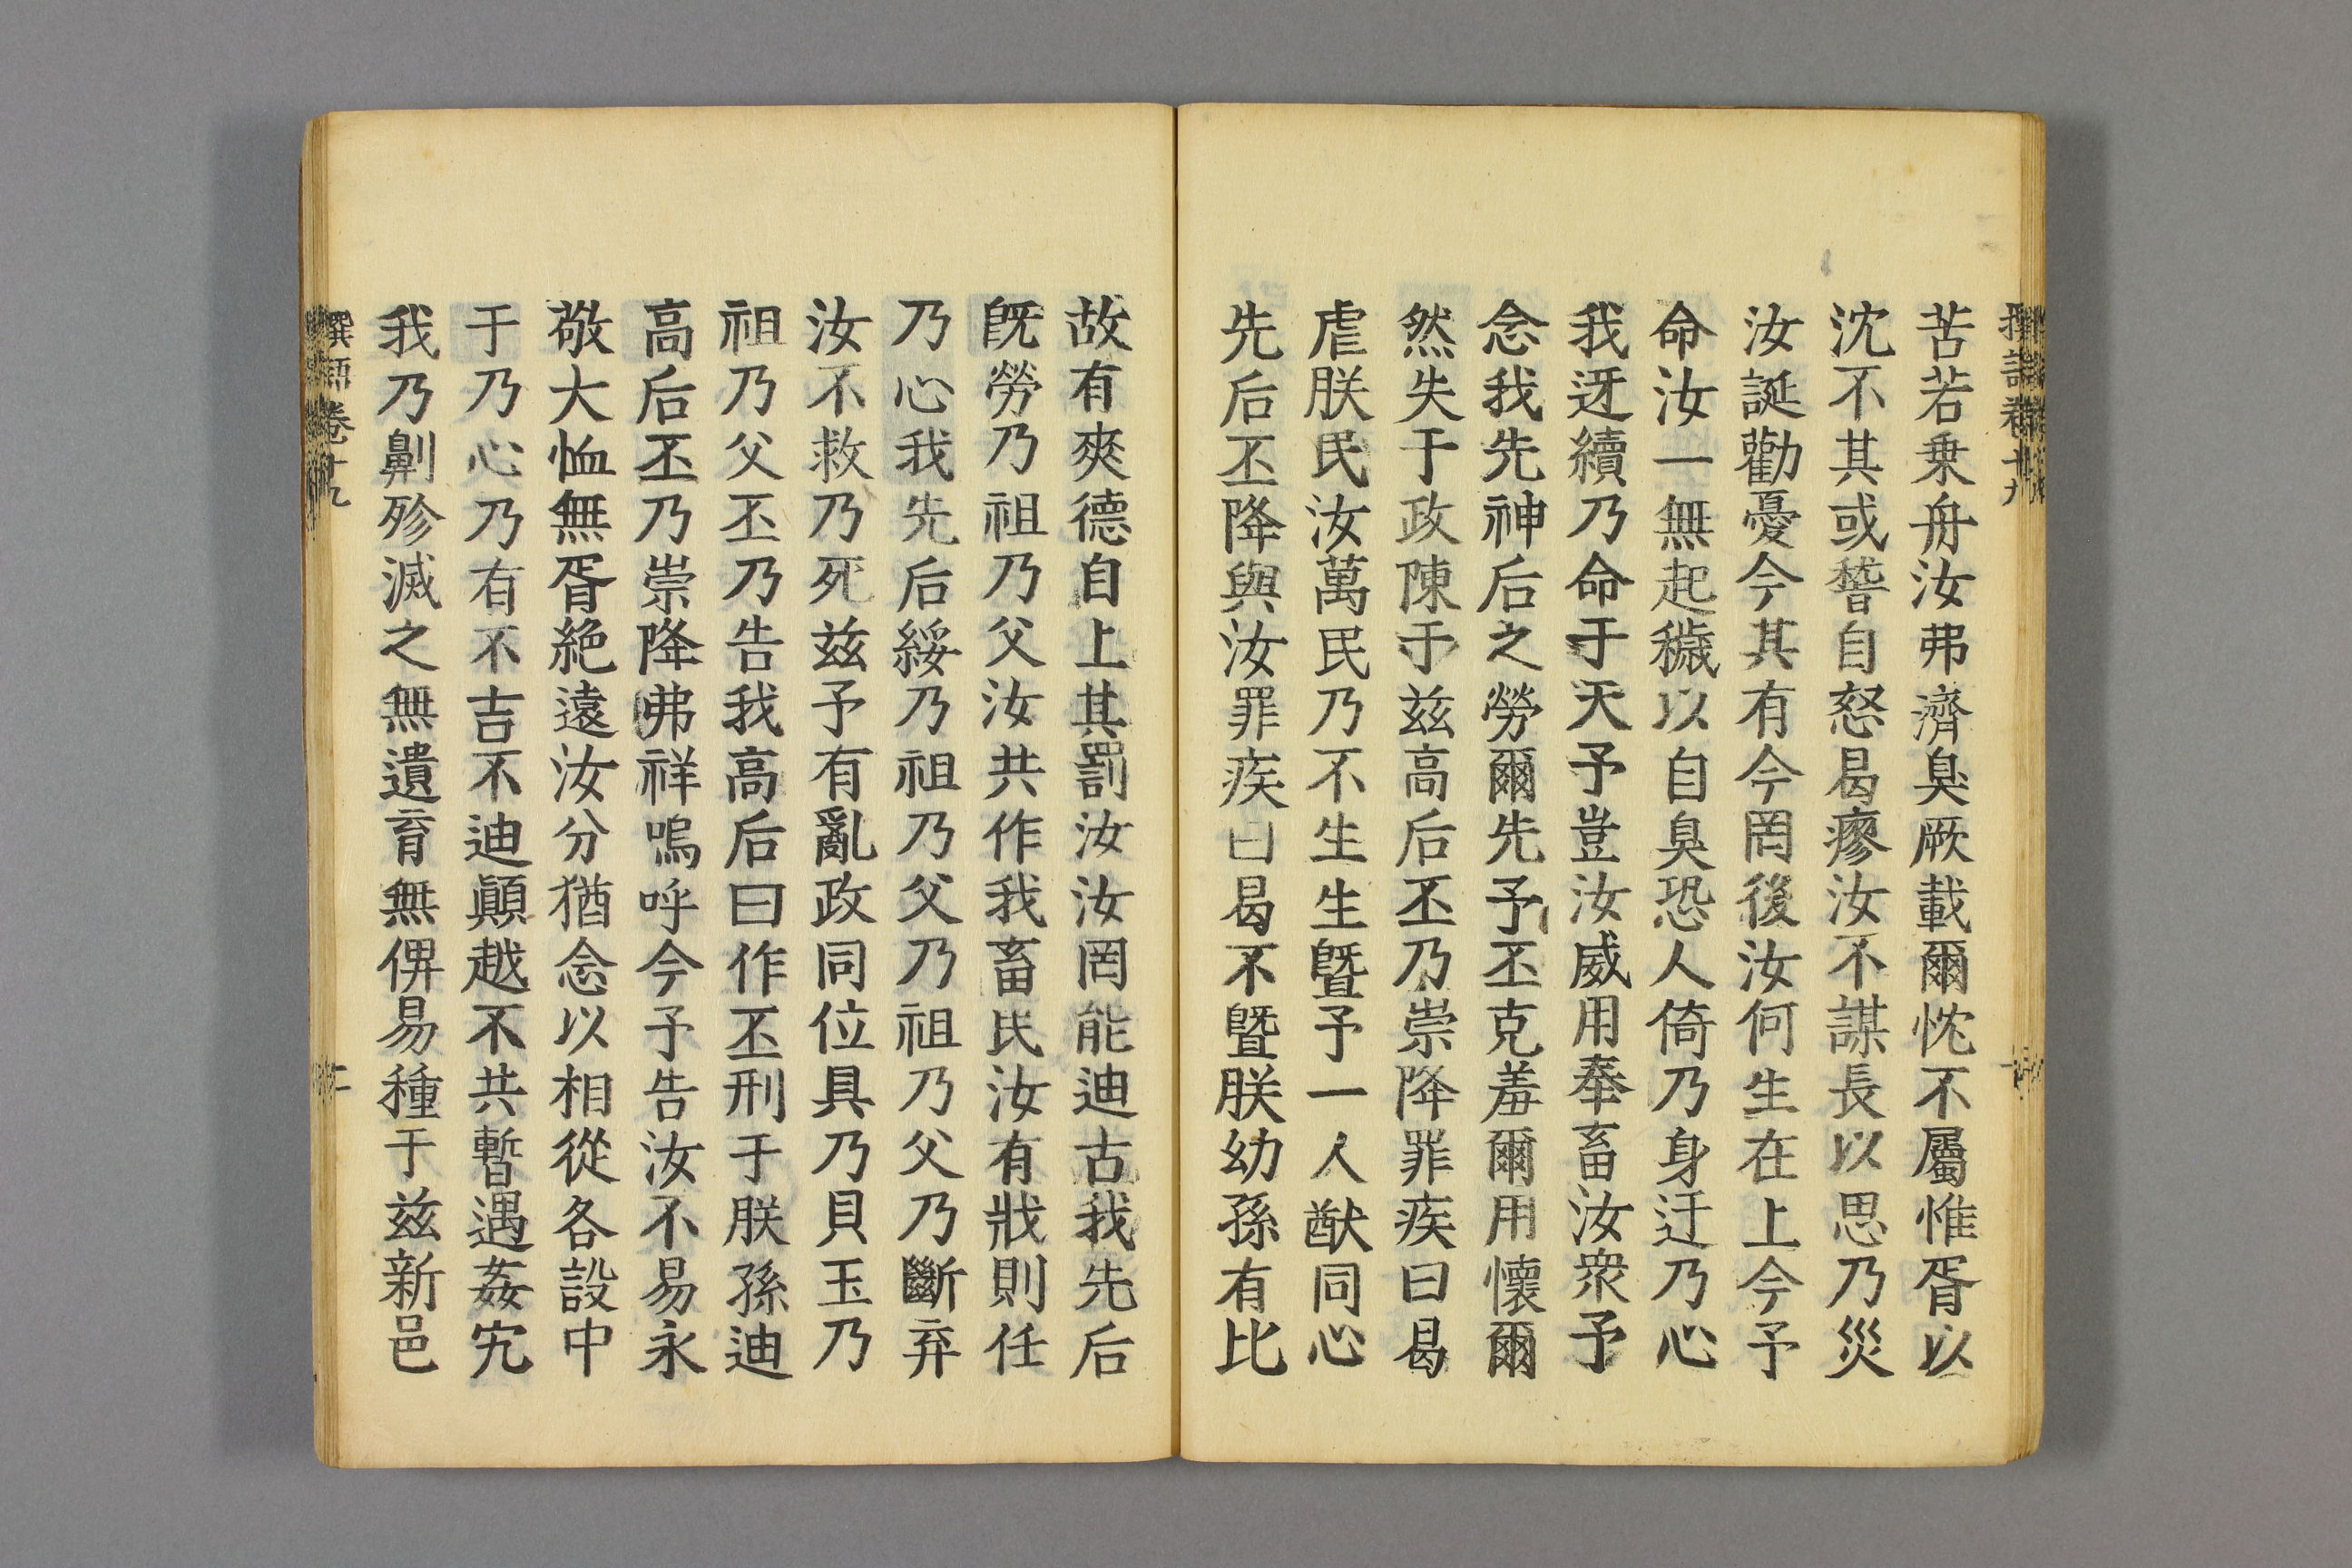 苦若乗舟汝弗濟臭厥載爾忱不屬惟胥以
沈不其或瞀自怒曷瘳汝不謀長以思乃災
汝誕勸憂今其有今罔後汝何生在上今予
命汝一無起穢以自臭恐人倚乃身迂乃心
我迓續乃命于天予豈汝威用奉畜汝衆予
念我先神后之勞爾先予丕克羞爾用懷爾
然失于政陳于兹高后丕乃崇降罪疾曰曷
虐朕民汝萬民乃不生生曁予一人猷同心
先后丕降與汝罪疾曰曷不曁朕幼孫有比
故有爽德自上其罰汝汝罔能迪古我先后
旣勞乃祖乃父汝共作我畜民汝有戕則任
乃心我先后綏乃祖乃父乃祖乃父乃斷弃
汝不救乃死兹予有亂政同位具乃貝玉乃
祖乃父丕乃告我高后曰作丕刑于朕孫迪
高后丕乃崇降弗祥嗚呼今予告汝不易永
敬大恤無胥絶遠汝分猶念以相從各設中
于乃心乃有不吉不迪顚越不共暫遇姦宄
我乃劓殄滅之無遺育無俾易種于兹新邑
卷十九